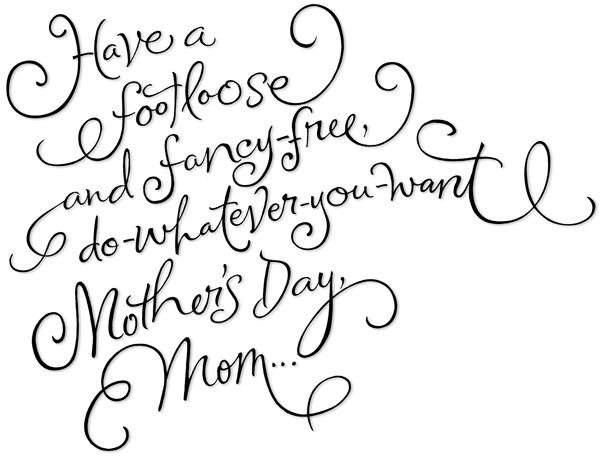 Have a
footloose
and fancy-free,
do-whatever-you-want
Mother's Day,
Mom...